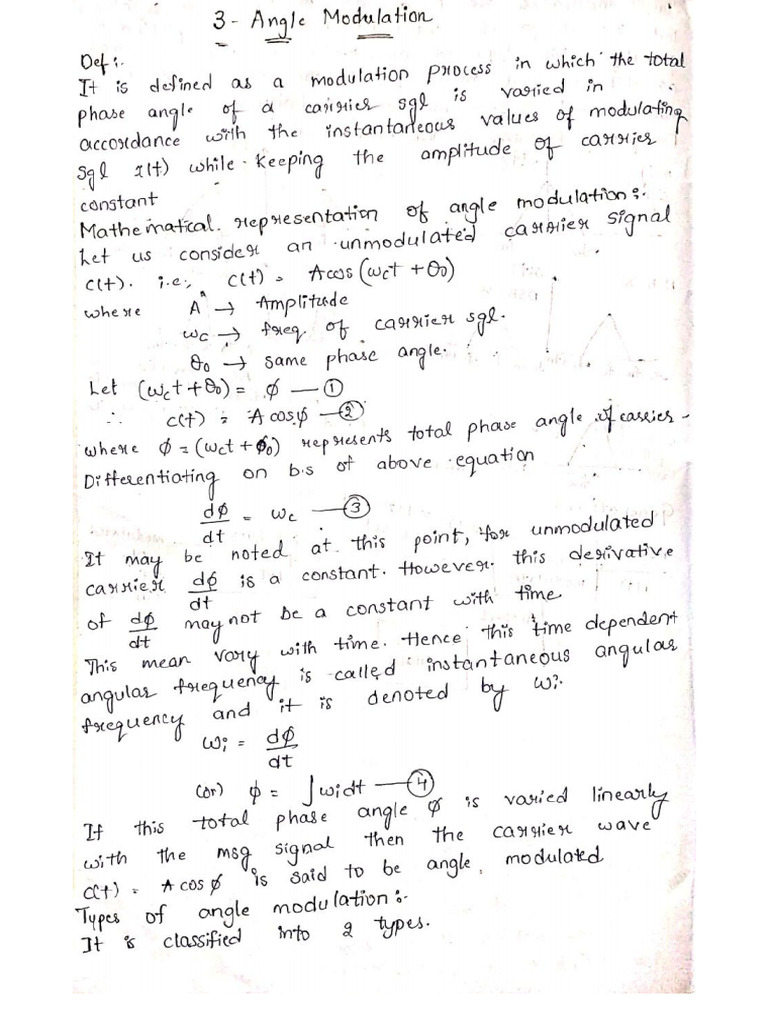 3 - Angle Modulation
Def :-
It is defined as a modulation process in which the total
phase angle of a carrier sgl is varied in
accordance with the instantaneous values of modulating
sgl x(t) while keeping the amplitude of carrier
constant
Mathematical representation of angle modulation :-
Let us consider an unmodulated carrier signal
c(t). i.e., c(t) = A cos (ωct + θ0)
where A → Amplitude
ωc → freq. of carrier sgl.
θ0 → same phase angle.
Let (ωct + θ0) = φ — ①
∴ c(t) = A cosφ — ②
where φ = (ωct + θ0) represents total phase angle of carrier -
Differentiating on b.s of above equation
dφ/dt = ωc — ③
It may be noted at this point, for unmodulated
carrier dφ/dt is a constant. However this derivative
of dφ/dt may not be a constant with time
This mean vary with time. Hence this time dependent
angular frequency is called instantaneous angular
frequency and it is denoted by ωi.
ωi = dφ/dt
(or) φ = ∫ωidt — ④
If this total phase angle φ is varied linearly
with the msg signal then the carrier wave
c(t) = A cos φ is said to be angle modulated
Types of angle modulation :-
It is classified into 2 types.